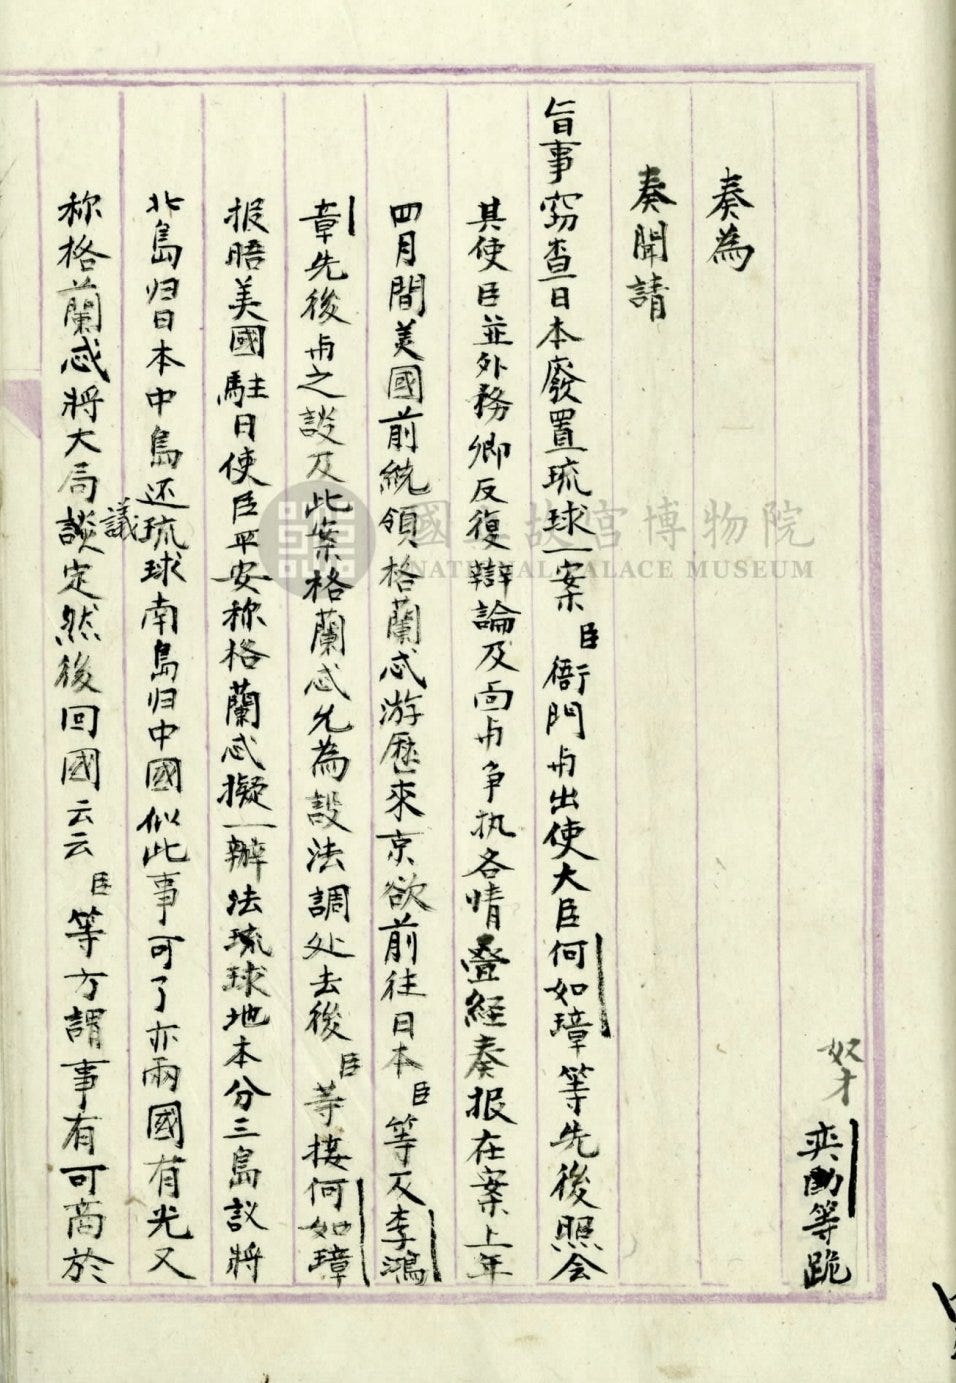 奴才奕劻等跪
奏為
奏聞請
旨事窃查日本廢置琉球一案臣衙門与出使大臣何如璋等先後照会
其使臣並外務卿反復辯論及面与争执各情叠経奏报在案上年
四月間美國前統領格蘭忒游歷來京欲前往日本臣等及李鴻
章先後与之談及此案格蘭忒允為設法調处去後臣等接何如璋
报晤美國駐日使臣平安称格蘭忒擬一辦法琉球地本分三島議将
北島归日本中島还琉球南島归中國似此事可了亦兩國有光又
称格蘭忒將大局談議定然後回國云云臣等方謂事有可商於
國立故宮博物院
NATIONAL PALACE MUSEUM